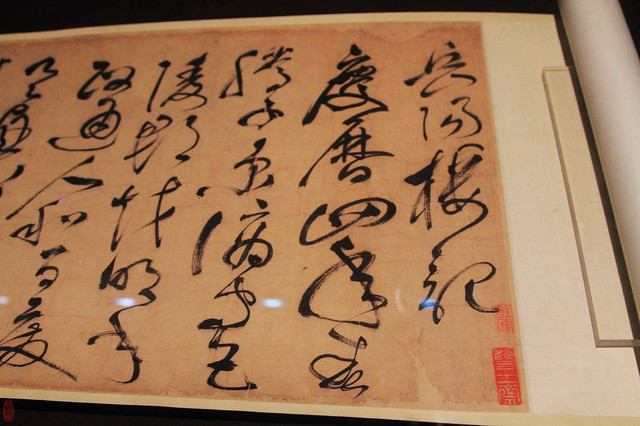 岳陽樓記
慶曆四年春
滕子京謫守巴
陵郡越明年
政通人和百廢